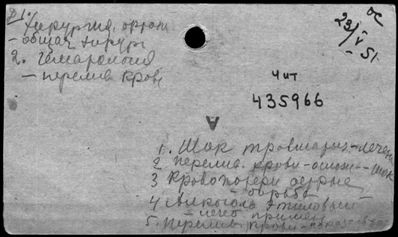 21.
хирургия, орган
- общая хирург
2. Гематология
- перелив. крови
ос
23/V 51.
Чит
435966
V
1. Шок травматич. - лечен
2 перелив. крови - ослож - шок
3 Кровопотери острые
4 Алкоголь этиловый
лечо примен
5. Перелив. крови -